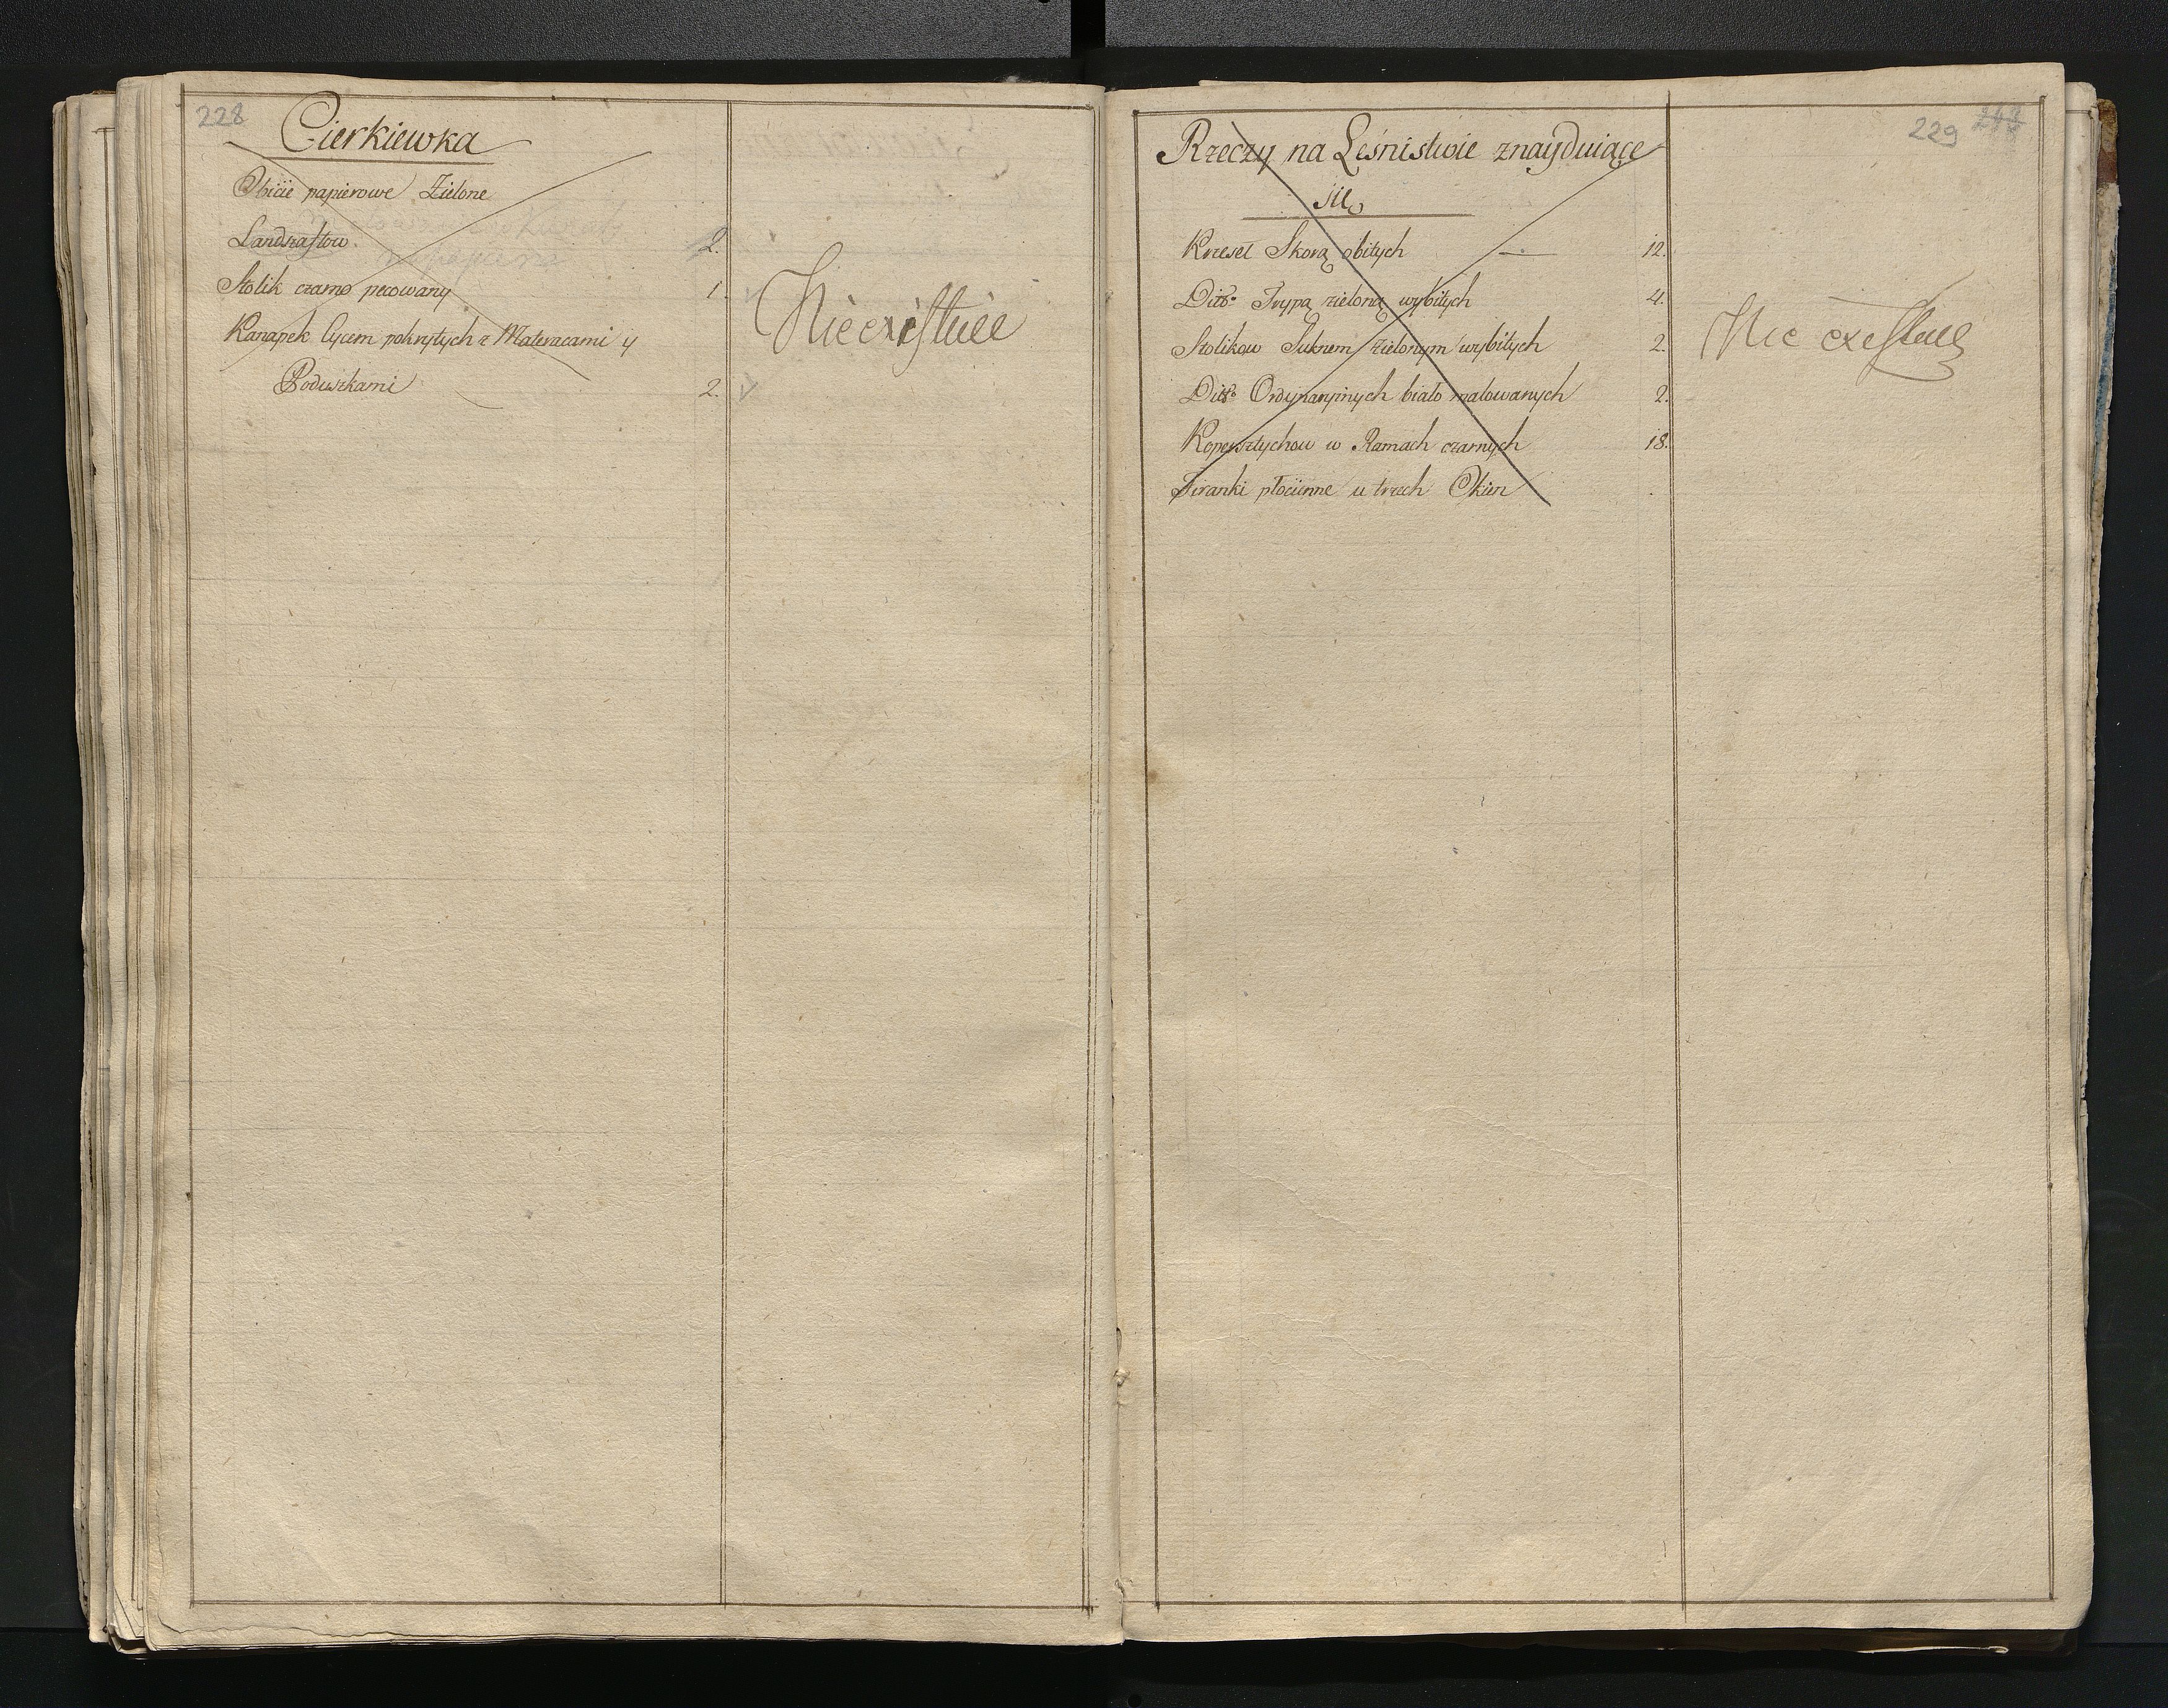 228
Cierkiewka
Obicie papierowe Zielone
Landszaftow 2.
Stolik czarno pecowany 1.
Kanapek Cycem pokrytych z Materacami y
Poduszkami 2.
Nie existuie
229
Rzeczy na Leśnistwie znayduiące
się
Krzeseł Skorą obitych 12.
Ditto Trypą zieloną wybitych 4.
Stolikow Suknem zielonym wybitych 2.
Ditto Ordynaryinych biało malowanych 2.
Kopersztychow w Ramach czarnych 18.
Firanki płocienne u trzech Okien
Nie existuie